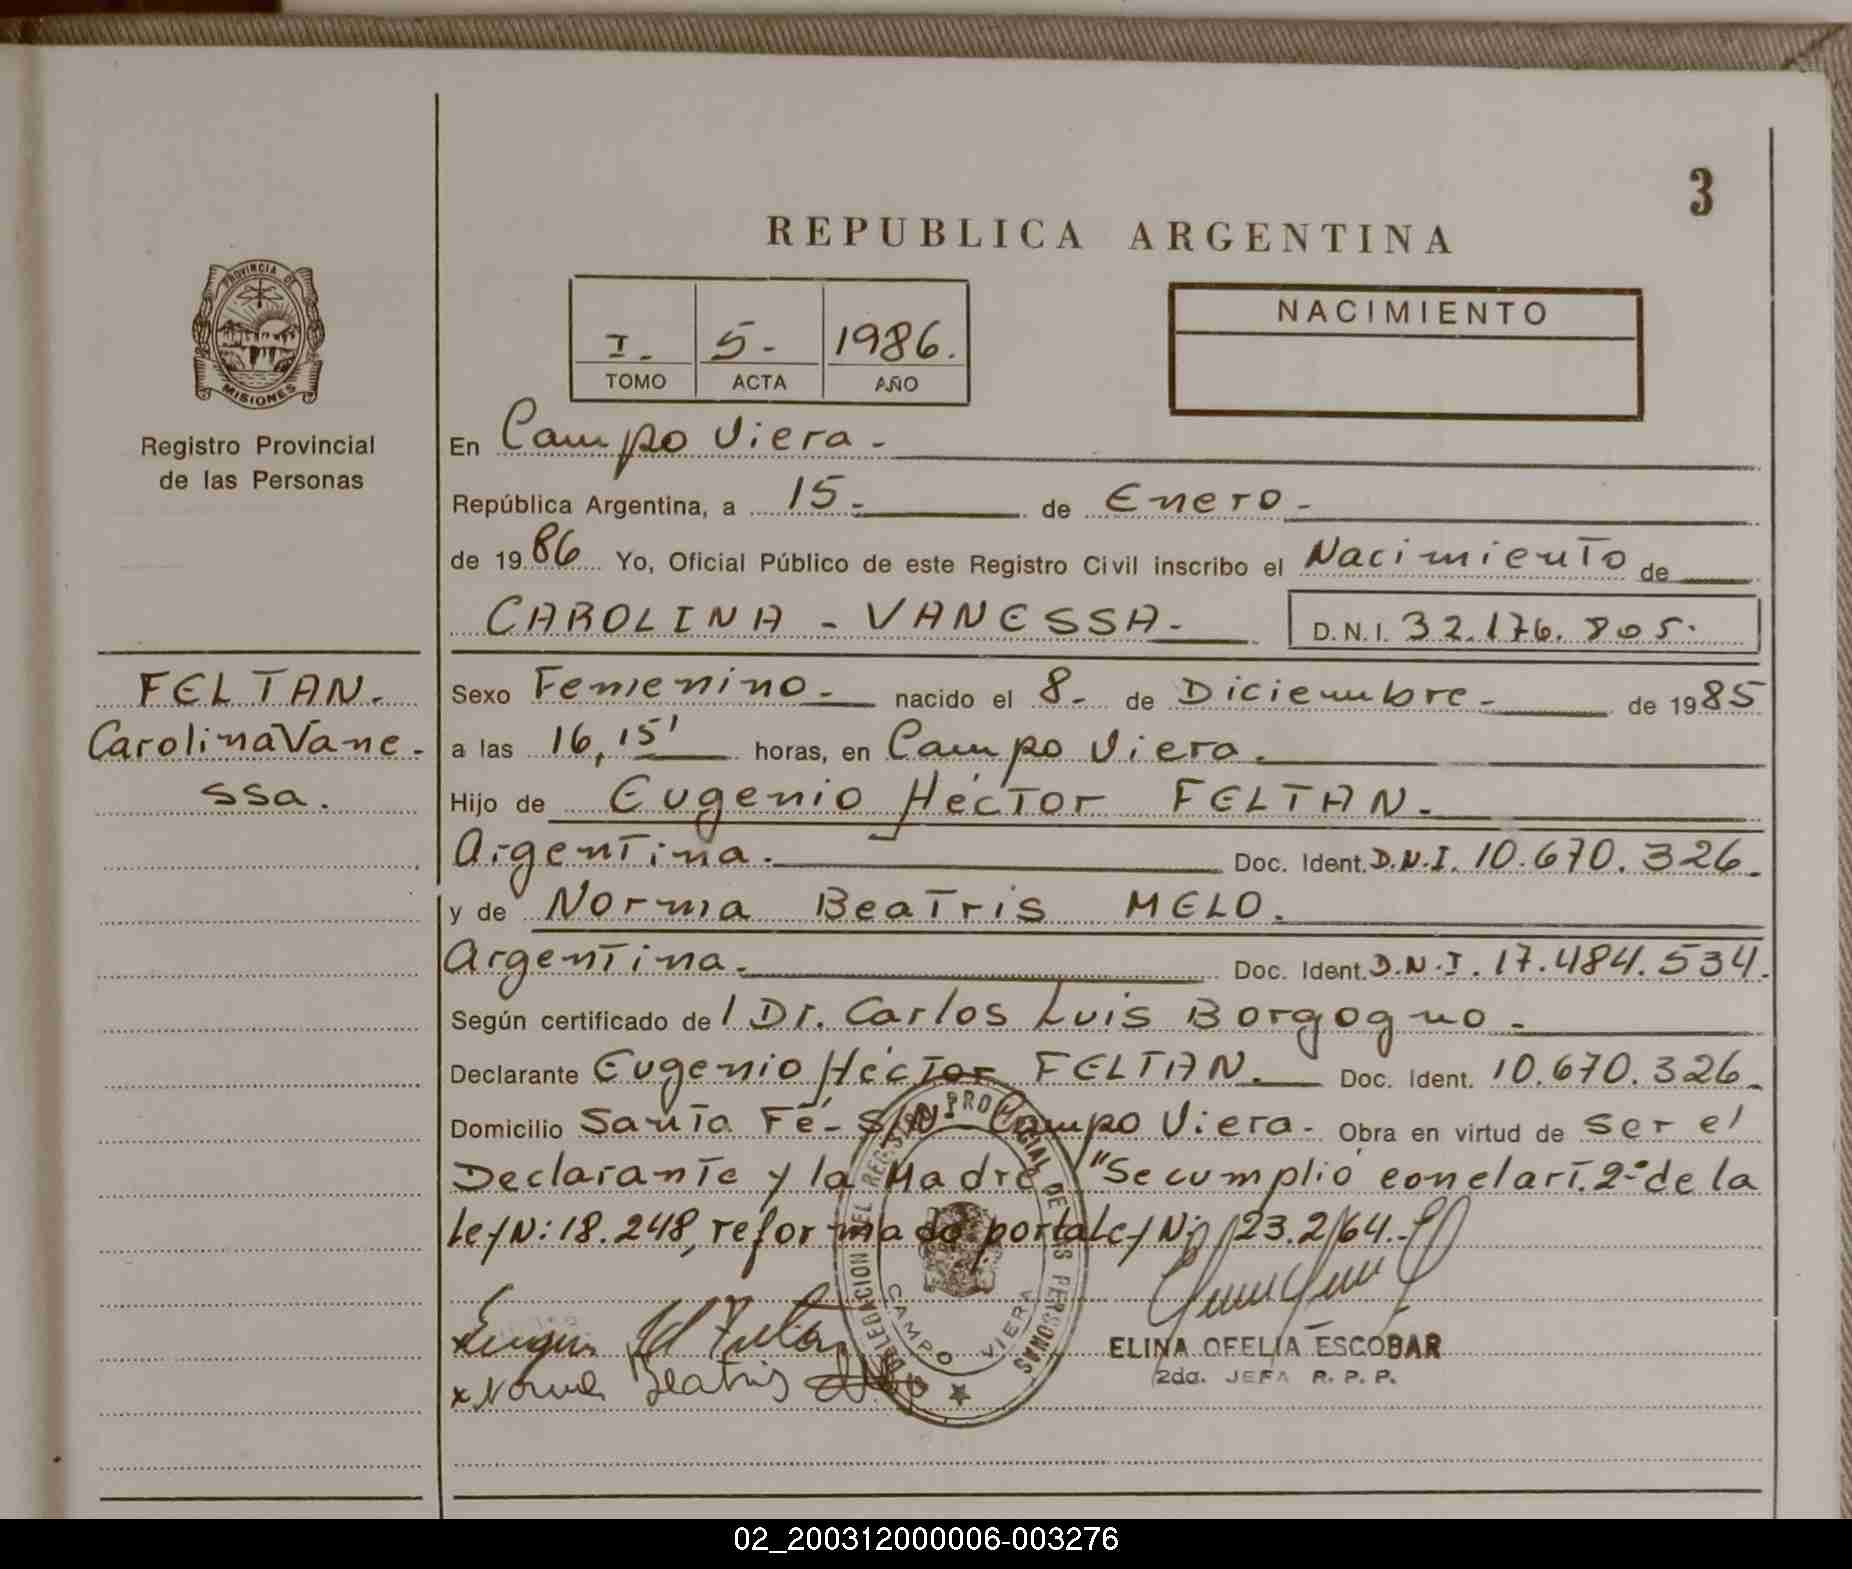 3
REPUBLICA ARGENTINA
PROVINCIA DE
MISIONES
Registro Provincial
de las Personas
I. 5- 1986.
TOMO ACTA AÑO
NACIMIENTO
En Campo Viera-
República Argentina, a 15- de Enero-
de 1986 Yo, Oficial Público de este Registro Civil inscribo el Nacimiento de
CAROLINA - VANESSA- D.N.I. 32.176.805.
FELTAN.
Carolina Vane-
ssa.
Sexo Femenino- nacido el 8- de Diciembre- de 1985
a las 16,15' horas, en Campo Viera.
Hijo de Eugenio Héctor FELTAN.
Argentina. Doc. Ident. D.N.I. 10.670.326.
y de Norma Beatris MELO.
Argentina. Doc. Ident. D.N.I. 17.484.534.
Según certificado del Dr. Carlos Luis Borgogno-
Declarante Eugenio Héctor FELTAN. Doc. Ident. 10.670.326.
Domicilio Santa Fé- S/N- Campo Viera- Obra en virtud de ser el
Declarante y la Madre "Se cumplió con el art. 2º de la
Ley N: 18.248, reformado por la Ley N: 23.264.-
DELEGACION DEL REGISTRO PROVINCIAL DE LAS PERSONAS
CAMPO VIERA
ELINA OFELIA ESCOBAR
2da. JEFA R. P. P.
x Norma Beatris
02_200312000006-003276